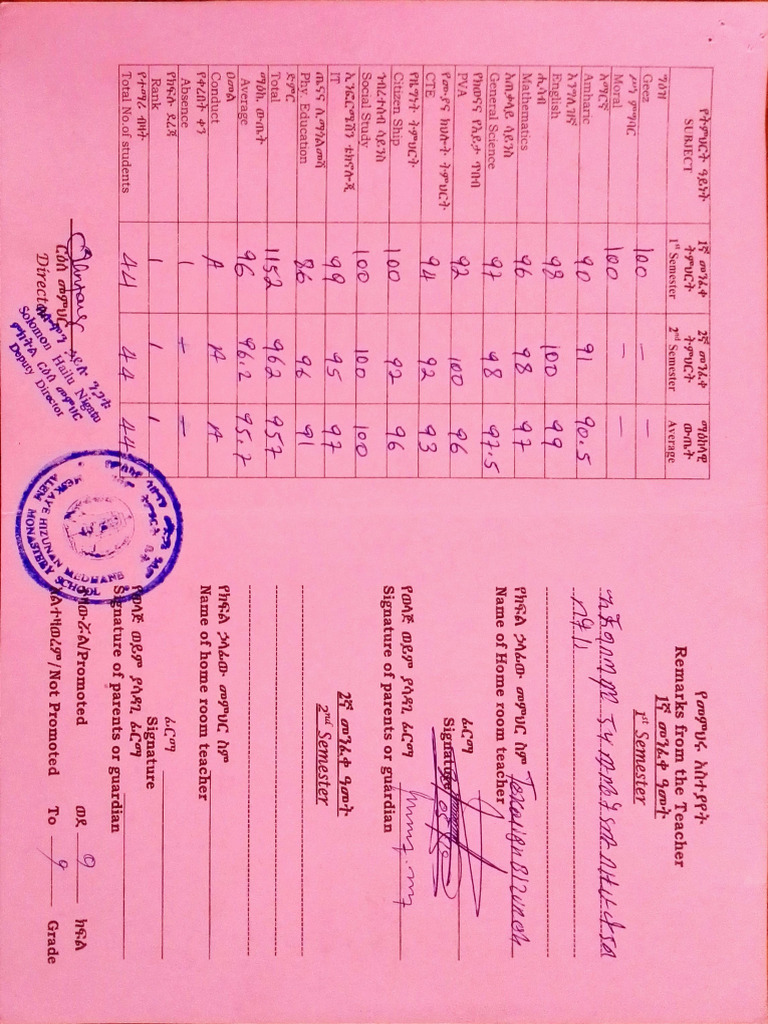 የትምህርት ዓይነት
SUBJECT
1ኛ መንፈቀ ትምህርት
1st Semester
2ኛ መንፈቀ ትምህርት
2nd Semester
ማዕከላዊ ውጤት
Average
ግዕዝ
Geez 100 — —
ሥነ ምግባር
Moral 100 — —
አማርኛ
Amharic 90 91 90.5
እንግሊዝኛ
English 98 100 99
ሒሳብ
Mathematics 96 98 97
አጠቃላይ ሳይንስ
General Science 97 98 97.5
የክወናና የእይታ ጥበብ
PVA 92 100 96
የሙያና ክህሎት ትምህርት
CTE 94 92 93
የዜግነት ትምህርት
Citizen Ship 100 92 96
ኅብረተሰብ ሳይንስ
Social Study 100 100 100
ኢንፎርሜሽን ቴክኖሎጂ
IT 99 95 97
ጤናና ሰ.ማጎልመሻ
Phy. Education 86 96 91
ድምር
Total 1152 962 957
ማዕከ. ውጤት
Average 96 96.2 95.7
ዐመል
Conduct A A A
የቀረበት ቀን
Absence 1
የክፍሉ ደረጃ
Rank 1 1 1
የተማሪ ብዛት
Total No.of students 44 44 44
ርዕሰ መምህር
Director
ሰሎሞን ኃይሉ ንጋቱ
Solomon Hailu Nigatu
ምክትል ርዕሰ መምህር
Deputy Director
MEKAYE HIZUNAN MEDHANE
ALEM
MONASTERY SCHOOL
የመምህሩ አስተያየት
Remarks from the Teacher
1ኛ መንፈቀ ዓመት
1st Semester
የክፍል ኃላፊው መምህር ስም
Name of Home room teacher
ፊርማ
Signature
የወላጅ ወይም ያሳዳጊ ፊርማ
Signature of parents or guardian
2ኛ መንፈቀ ዓመት
2nd Semester
የክፍል ኃላፊው መምህር ስም
Name of home room teacher
ፊርማ
Signature
የወላጅ ወይም ያሳዳጊ ፊርማ
Signature of parents or guardian
ተዛውሯል/Promoted ወደ 9 ክፍል
አልተዛወረም/Not Promoted To 9 Grade